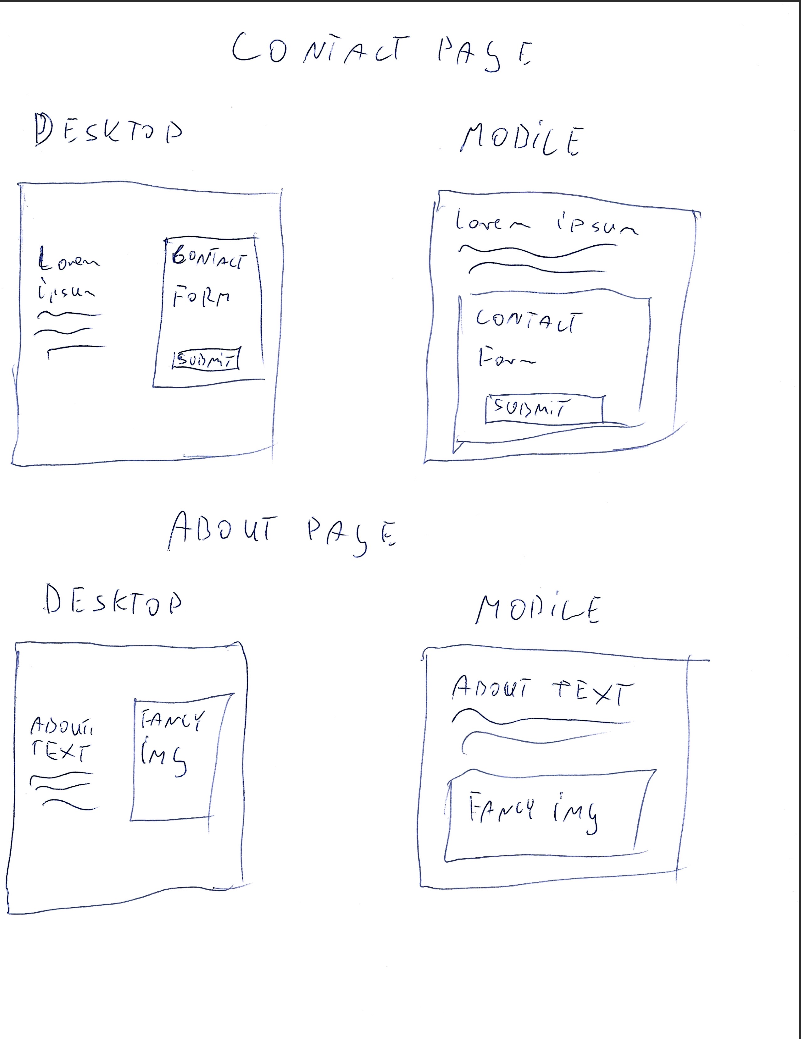 CONTACT PAGE
DESKTOP
MOBILE
Lorem
ipsum
CONTACT
FORM
SUBMIT
Lorem ipsum
CONTACT
Form
SUBMIT
ABOUT PAGE
DESKTOP
MOBILE
ABOUT
TEXT
FANCY
img
ABOUT TEXT
FANCY img